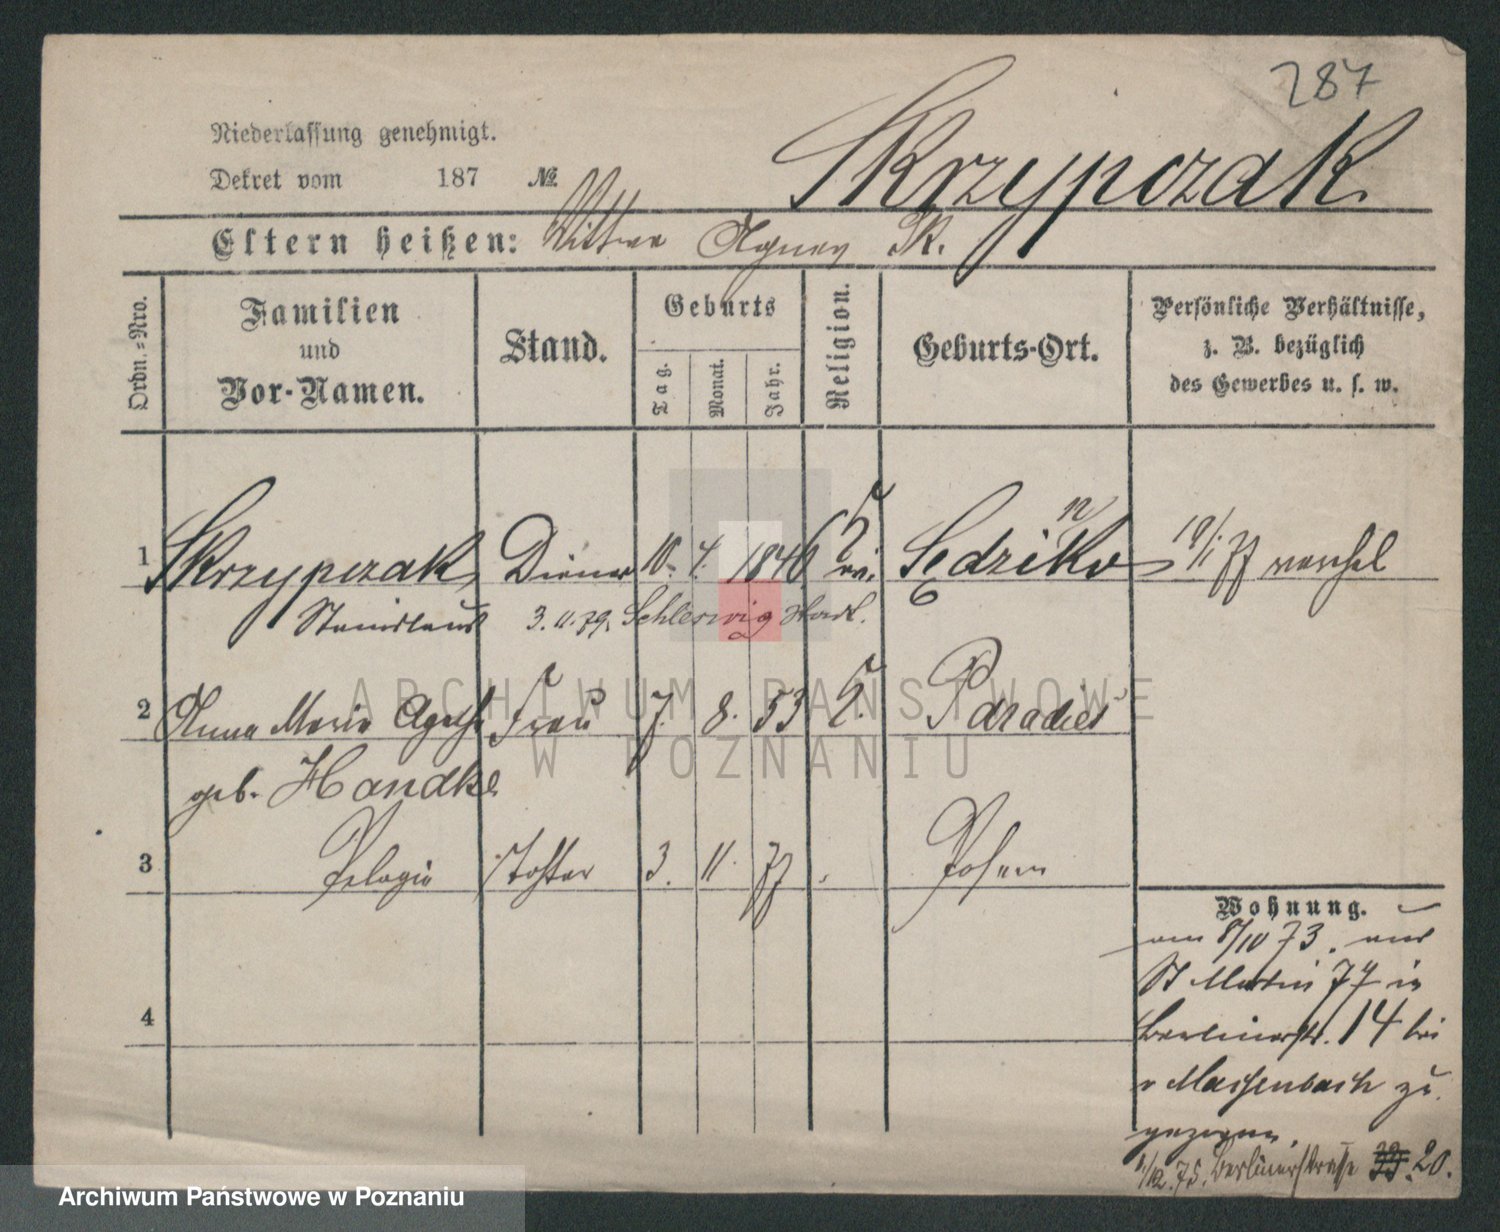 287
Niederlassung genehmigt.
Dekret vom 187 №
Skrzypczak
Eltern heißen: Wittwe Agnes Sk.
Ordn.-Nro.
Familien
und
Vor-Namen.
Stand.
Geburts
Tag.
Monat.
Jahr.
Religion.
Geburts-Ort.
Persönliche Verhältnisse,
z. B. bezüglich
des Gewerbes u. s. w.
1 Skrzypczak Diener 10. 4. 1846
Stanislaus 3.11.79. Schleswig
2 Anna Maria Agath Frau 7. 8. 53 Paradies
geb. Handke
3 Pelagia Tochter 3. 11. 77 Posen
4
Wohnung.
am 8/10 73. aus
St Martin 74 in
Berlinerstr. 14 bei
v Massenbach zu
gezogen.
1/12.75. Berlinerstrasse 20.
ARCHIWUM PAŃSTWOWE
W POZNANIU
Archiwum Państwowe w Poznaniu